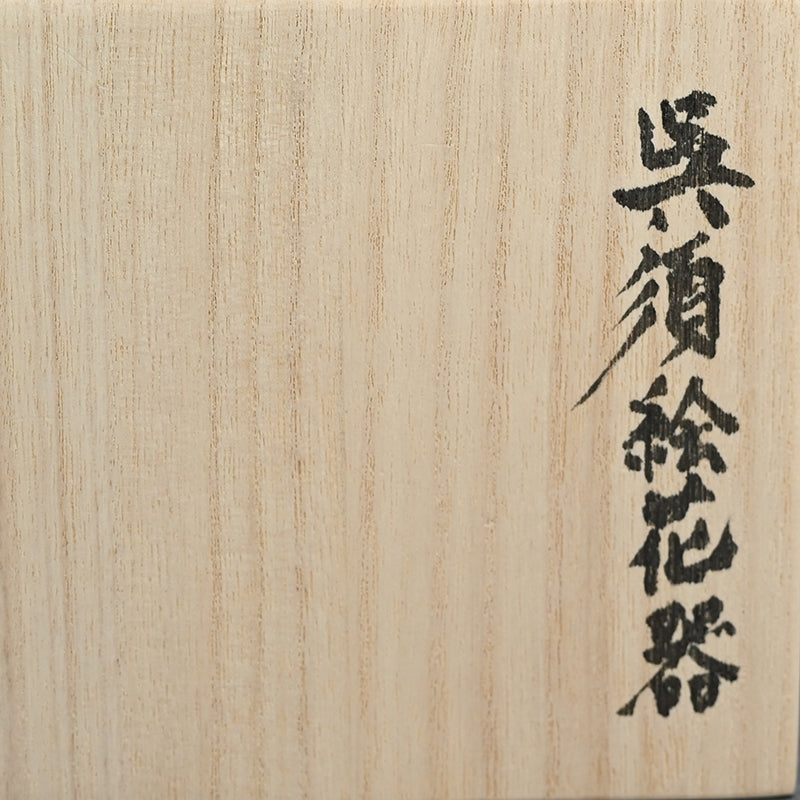 呉須絵花器